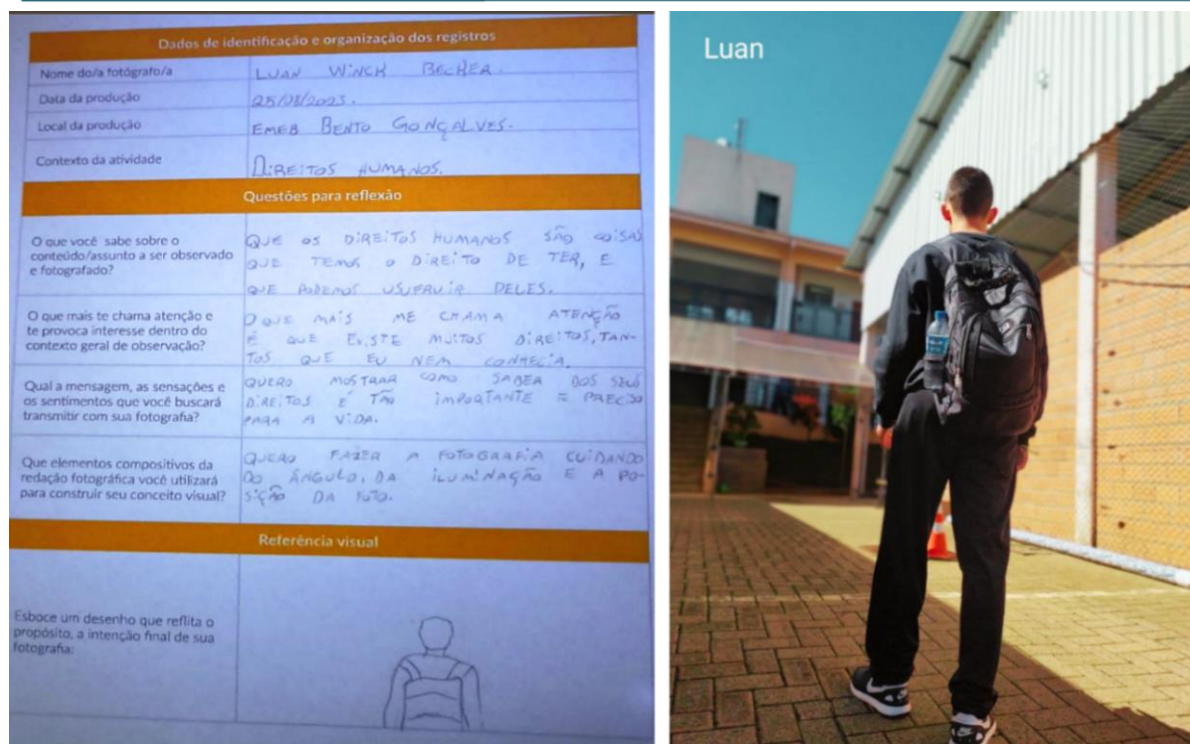 Dados de identificação e organização dos registros
Nome do/a fotógrafo/a
LUAN WINCK BECHER.
Data da produção
25/08/2023.
Local da produção
EMEB BENTO GONÇALVES.
Contexto da atividade
DIREITOS HUMANOS.
Questões para reflexão
O que você sabe sobre o
conteúdo/assunto a ser observado
e fotografado?
QUE OS DIREITOS HUMANOS SÃO COISAS
QUE TEMOS O DIREITO DE TER, E
QUE PODEMOS USUFRUIR DELES.
O que mais te chama atenção e
te provoca interesse dentro do
contexto geral de observação?
O QUE MAIS ME CHAMA ATENÇÃO
É QUE EXISTE MUITOS DIREITOS, TAN-
TOS QUE EU NEM CONHECIA.
Qual a mensagem, as sensações e
os sentimentos que você buscará
transmitir com sua fotografia?
QUERO MOSTRAR COMO SABER DOS SEUS
DIREITOS É TÃO IMPORTANTE E PRECISO
PARA A VIDA.
Que elementos compositivos da
redação fotográfica você utilizará
para construir seu conceito visual?
QUERO FAZER A FOTOGRAFIA CUIDANDO
DO ÂNGULO, DA ILUMINAÇÃO E A PO-
SIÇÃO DA FOTO.
Referência visual
Esboce um desenho que reflita o
propósito, a intenção final de sua
fotografia:
Luan